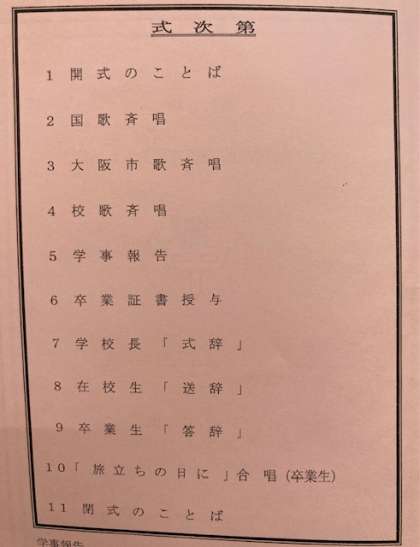 式次第
1 開式のことば
2 国歌斉唱
3 大阪市歌斉唱
4 校歌斉唱
5 学事報告
6 卒業証書授与
7 学校長「式辞」
8 在校生「送辞」
9 卒業生「答辞」
10「旅立ちの日に」合唱(卒業生)
11 閉式のことば
学事報告